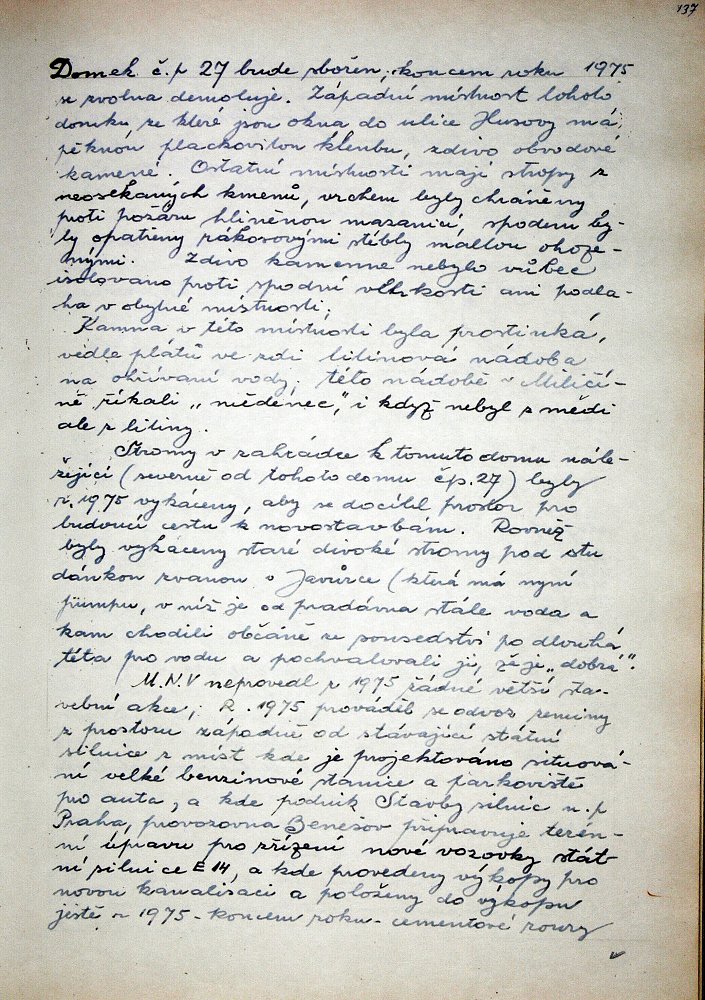 137
Domek č.p 27 bude sbořen; koncem roku 1975
se zvolna demoluje. Západní místnost tohoto
domku, ze které jsou okna do ulice Husovy má
pěknou plackovitou klenbu, zdivo obvodové
kamené. Ostatní místnosti mají stropy z
neosekaných kmenů, vrchem byly chráněny
proti požáru hliněnou mazanicí, spodem by-
ly opatřeny rákosovými stébly maltou ohoze-
nými. Zdivo kamenné nebylo vůbec
isolováno proti spodní vlhkosti ani podla-
ha v obytné místnosti;
Kamna v této místnosti byla prostinká,
vedle plátů ve zdi litinová nádoba
na ohřívaní vody; této nádobě v Miličí-
ně říkali „měděnec", i když nebyl z mědi
ale z litiny.
Stromy v zahrádce k tomuto domu nále-
žející (severně od tohoto domu čp. 27) byly
r. 1975 vykáceny, aby se docílil prostor pro
budoucí cestu k novostavbám. Rovněž
byly vykáceny staré divoké stromy pod stu
dánkou zvanou v Javůrce (která má nyní
pumpu, v níž je od pradávna stále voda a
kam chodili občané ze sousedství po dlouhá
léta pro vodu a pochvalovali ji, že je „dobrá".
M.N.V neprovedl r 1975 řádné větší sta-
vební akce; R. 1975 prováděl se odvoz zeminy
z prostoru západně od stávající státní
silnice z míst kde je projektováno situová-
ní velké benzinové stanice a parkoviště
pro auta, a kde podnik Stavby silnic n. p
Praha, provozovna Benešov připravuje terén-
ní úpravu pro zřízení nové vozovky stát-
ní silnice E 14, a kde provedeny výkopy pro
novou kanalisaci a položeny do výkopu
ještě r 1975 - koncem roku - cementové roury